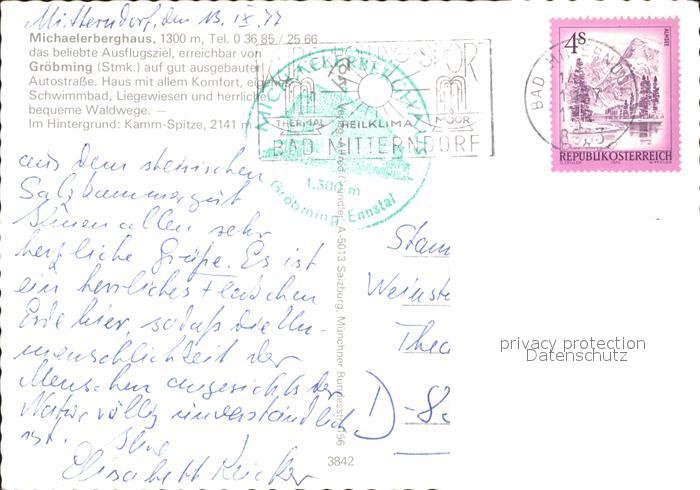 Mitterndorf, den 13. IX. 77
Michaelerberghaus, 1300 m, Tel. 0 36 85 / 25 66
das beliebte Ausflugsziel, erreichbar von
Gröbming (Stmk.) auf gut ausgebauter
Autostraße. Haus mit allem Komfort, eig
Schwimmbad, Liegewiesen und herrliche
bequeme Waldwege. —
Im Hintergrund: Kamm-Spitze, 2141 m
MICHAELERBERGHAUS
1.300 m
Gröbming Ennstal
SPORT
THERMAL HEILKLIMA MOOR
BAD MITTERNDORF
4S
ALMSEE
REPUBLIK ÖSTERREICH
BAD MITTERNDORF
aus dem steirischen
Salzkammergut
Ihnen allen sehr
herzliche Grüße. Es ist
ein herrliches Fleckchen
Erde hier, sodaß die Un-
menschlichkeit der
Menschen angesichts der
Natur völlig unverständlich
ist. Ihre
Elisabeth
A-5013 Salzburg, Münchner Bundesstraße 156
3842
Weinst
Thea
D-8
privacy protection
Datenschutz